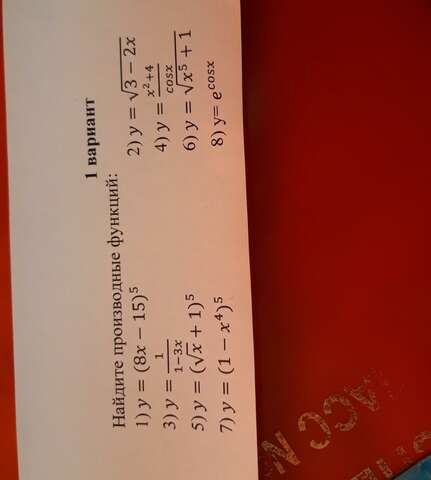 1 вариант
Найдите производные функций:
1) y = (8x − 15)⁵ 2) y = √(3 − 2x)
3) y = 1/(1−3x) 4) y = (x²+4)/cosx
5) y = (√x + 1)⁵ 6) y = √(x⁵ + 1)
7) y = (1 − x⁴)⁵ 8) y= e^cosx